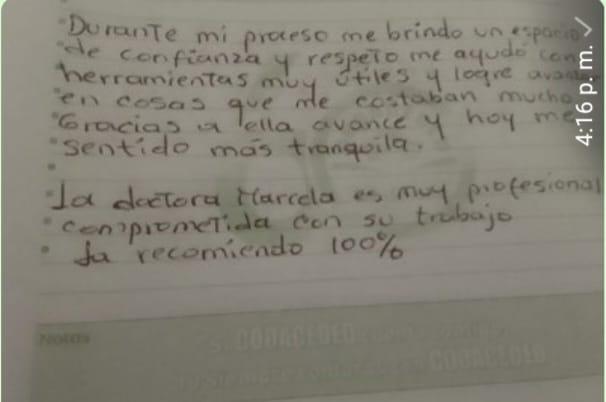 Durante mi proceso me brindo un espacio
de confianza y respeto me ayudó con
herramientas muy útiles y logre avanzar
en cosas que me costaban mucho
Gracias a ella avance y hoy me
sentido más tranquila.
La doctora Marcela es muy profesional
comprometida con su trabajo
La recomiendo 100%
4:16 p. m.
Notas